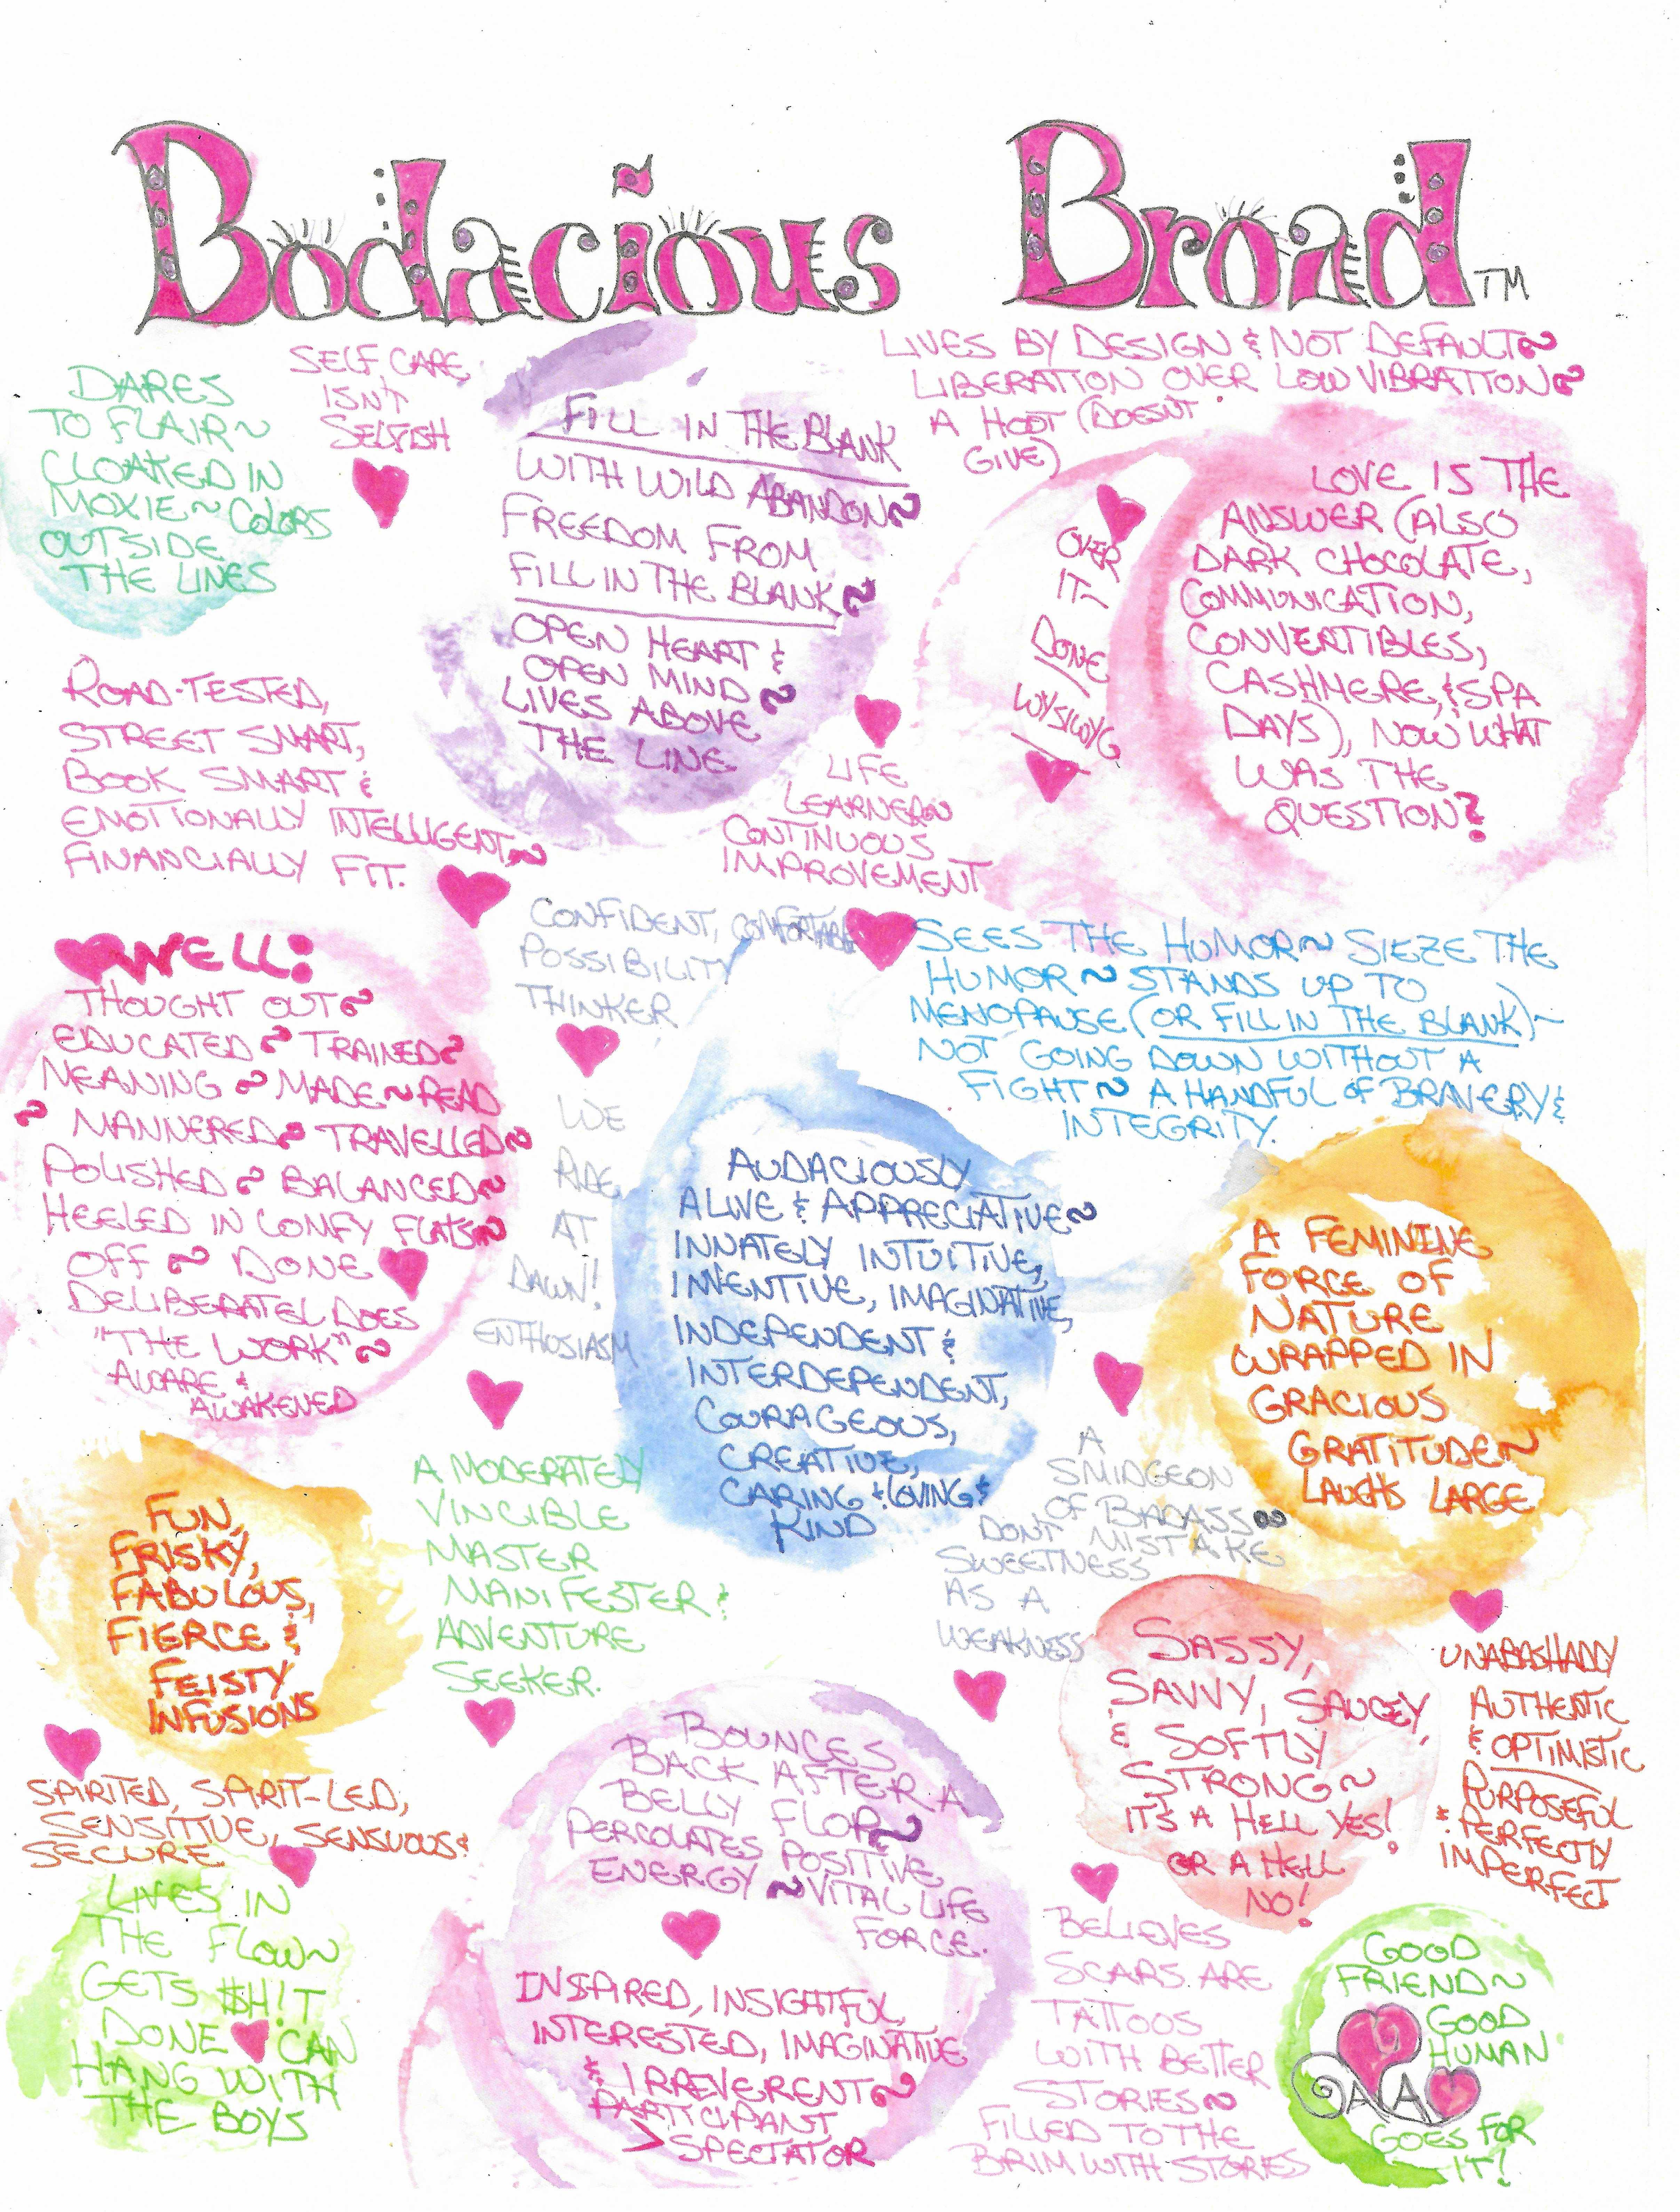 Bodacious Broad TM
DARES
TO FLAIR~
CLOAKED IN
MOXIE~COLORS
OUTSIDE
THE LINES
SELF CARE
ISN'T
SELFISH
FILL IN THE BLANK
WITH WILD ABANDON~
FREEDOM FROM
FILL IN THE BLANK~
OPEN HEART &
OPEN MIND ~
LIVES ABOVE
THE LINE
LIVES BY DESIGN & NOT DEFAULT~
LIBERATION OVER LOW VIBRATION~
A HOOT (DOESN'T
GIVE)
OVER
IT
DONE
WYSIWYG
LOVE IS THE
ANSWER (ALSO
DARK CHOCOLATE,
COMMUNICATION,
CONVERTIBLES,
CASHMERE, & SPA
DAYS), NOW WHAT
WAS THE
QUESTION?
ROAD-TESTED,
STREET SMART,
BOOK SMART &
EMOTIONALLY INTELLIGENT~
FINANCIALLY FIT.
LIFE
LEARNER~
CONTINUOUS
IMPROVEMENT
WELL:
THOUGHT OUT~
EDUCATED ~ TRAINED~
MEANING ~ MADE~READ
~ MANNERED~ TRAVELLED~
POLISHED ~ BALANCED~
HEELED IN COMFY FLATS~
OFF ~ DONE
DELIBERATEL DOES
"THE WORK"~
AWARE &
AWAKENED
CONFIDENT, COMFORTABLE
POSSIBILITY
THINKER
WE
RIDE
AT
DAWN!
ENTHUSIASM
SEES THE HUMOR~ SIEZE THE
HUMOR~ STANDS UP TO
MENOPAUSE (OR FILL IN THE BLANK)~
NOT GOING DOWN WITHOUT A
FIGHT~ A HANDFUL OF BRAVERY &
INTEGRITY.
AUDACIOUSLY
ALIVE & APPRECIATIVE~
INNATELY INTUITIVE,
INVENTIVE, IMAGINATIVE,
INDEPENDENT &
INTERDEPENDENT,
COURAGEOUS,
CREATIVE,
CARING & LOVING &
KIND
A FEMININE
FORCE OF
NATURE
WRAPPED IN
GRACIOUS
GRATITUDE~
LAUGHS LARGE
FUN,
FRISKY,
FABULOUS,
FIERCE &
FEISTY
INFUSIONS
A MODERATELY
VINCIBLE
MASTER
MANIFESTER &
ADVENTURE
SEEKER.
A
SMIDGEON
OF BADASS~
DON'T MISTAKE
SWEETNESS
AS A
WEAKNESS
SASSY,
SAVVY, SAUCEY,
& SOFTLY
STRONG~
IT'S A HELL YES!
OR A HELL
NO!
UNABASHADLY
AUTHENTIC
& OPTIMISTIC
PURPOSEFUL
& PERFECTLY
IMPERFECT
SPIRITED, SPIRIT-LED,
SENSITIVE, SENSUOUS &
SECURE
BOUNCES
BACK AFTER A
BELLY FLOP~
PERCOLATES POSITIVE
ENERGY ~VITAL LIFE
FORCE.
LIVES IN
THE FLOW~
GETS $H!T
DONE CAN
HANG WITH
THE BOYS
INSPIRED, INSIGHTFUL,
INTERESTED, IMAGINATIVE
& IRREVERENT~
PARTICIPANT
> SPECTATOR
BELIEVES
SCARS ARE
TATTOOS
WITH BETTER
STORIES~
FILLED TO THE
BRIM WITH STORIES
GOOD
FRIEND~
GOOD
HUMAN
GOES FOR
IT!